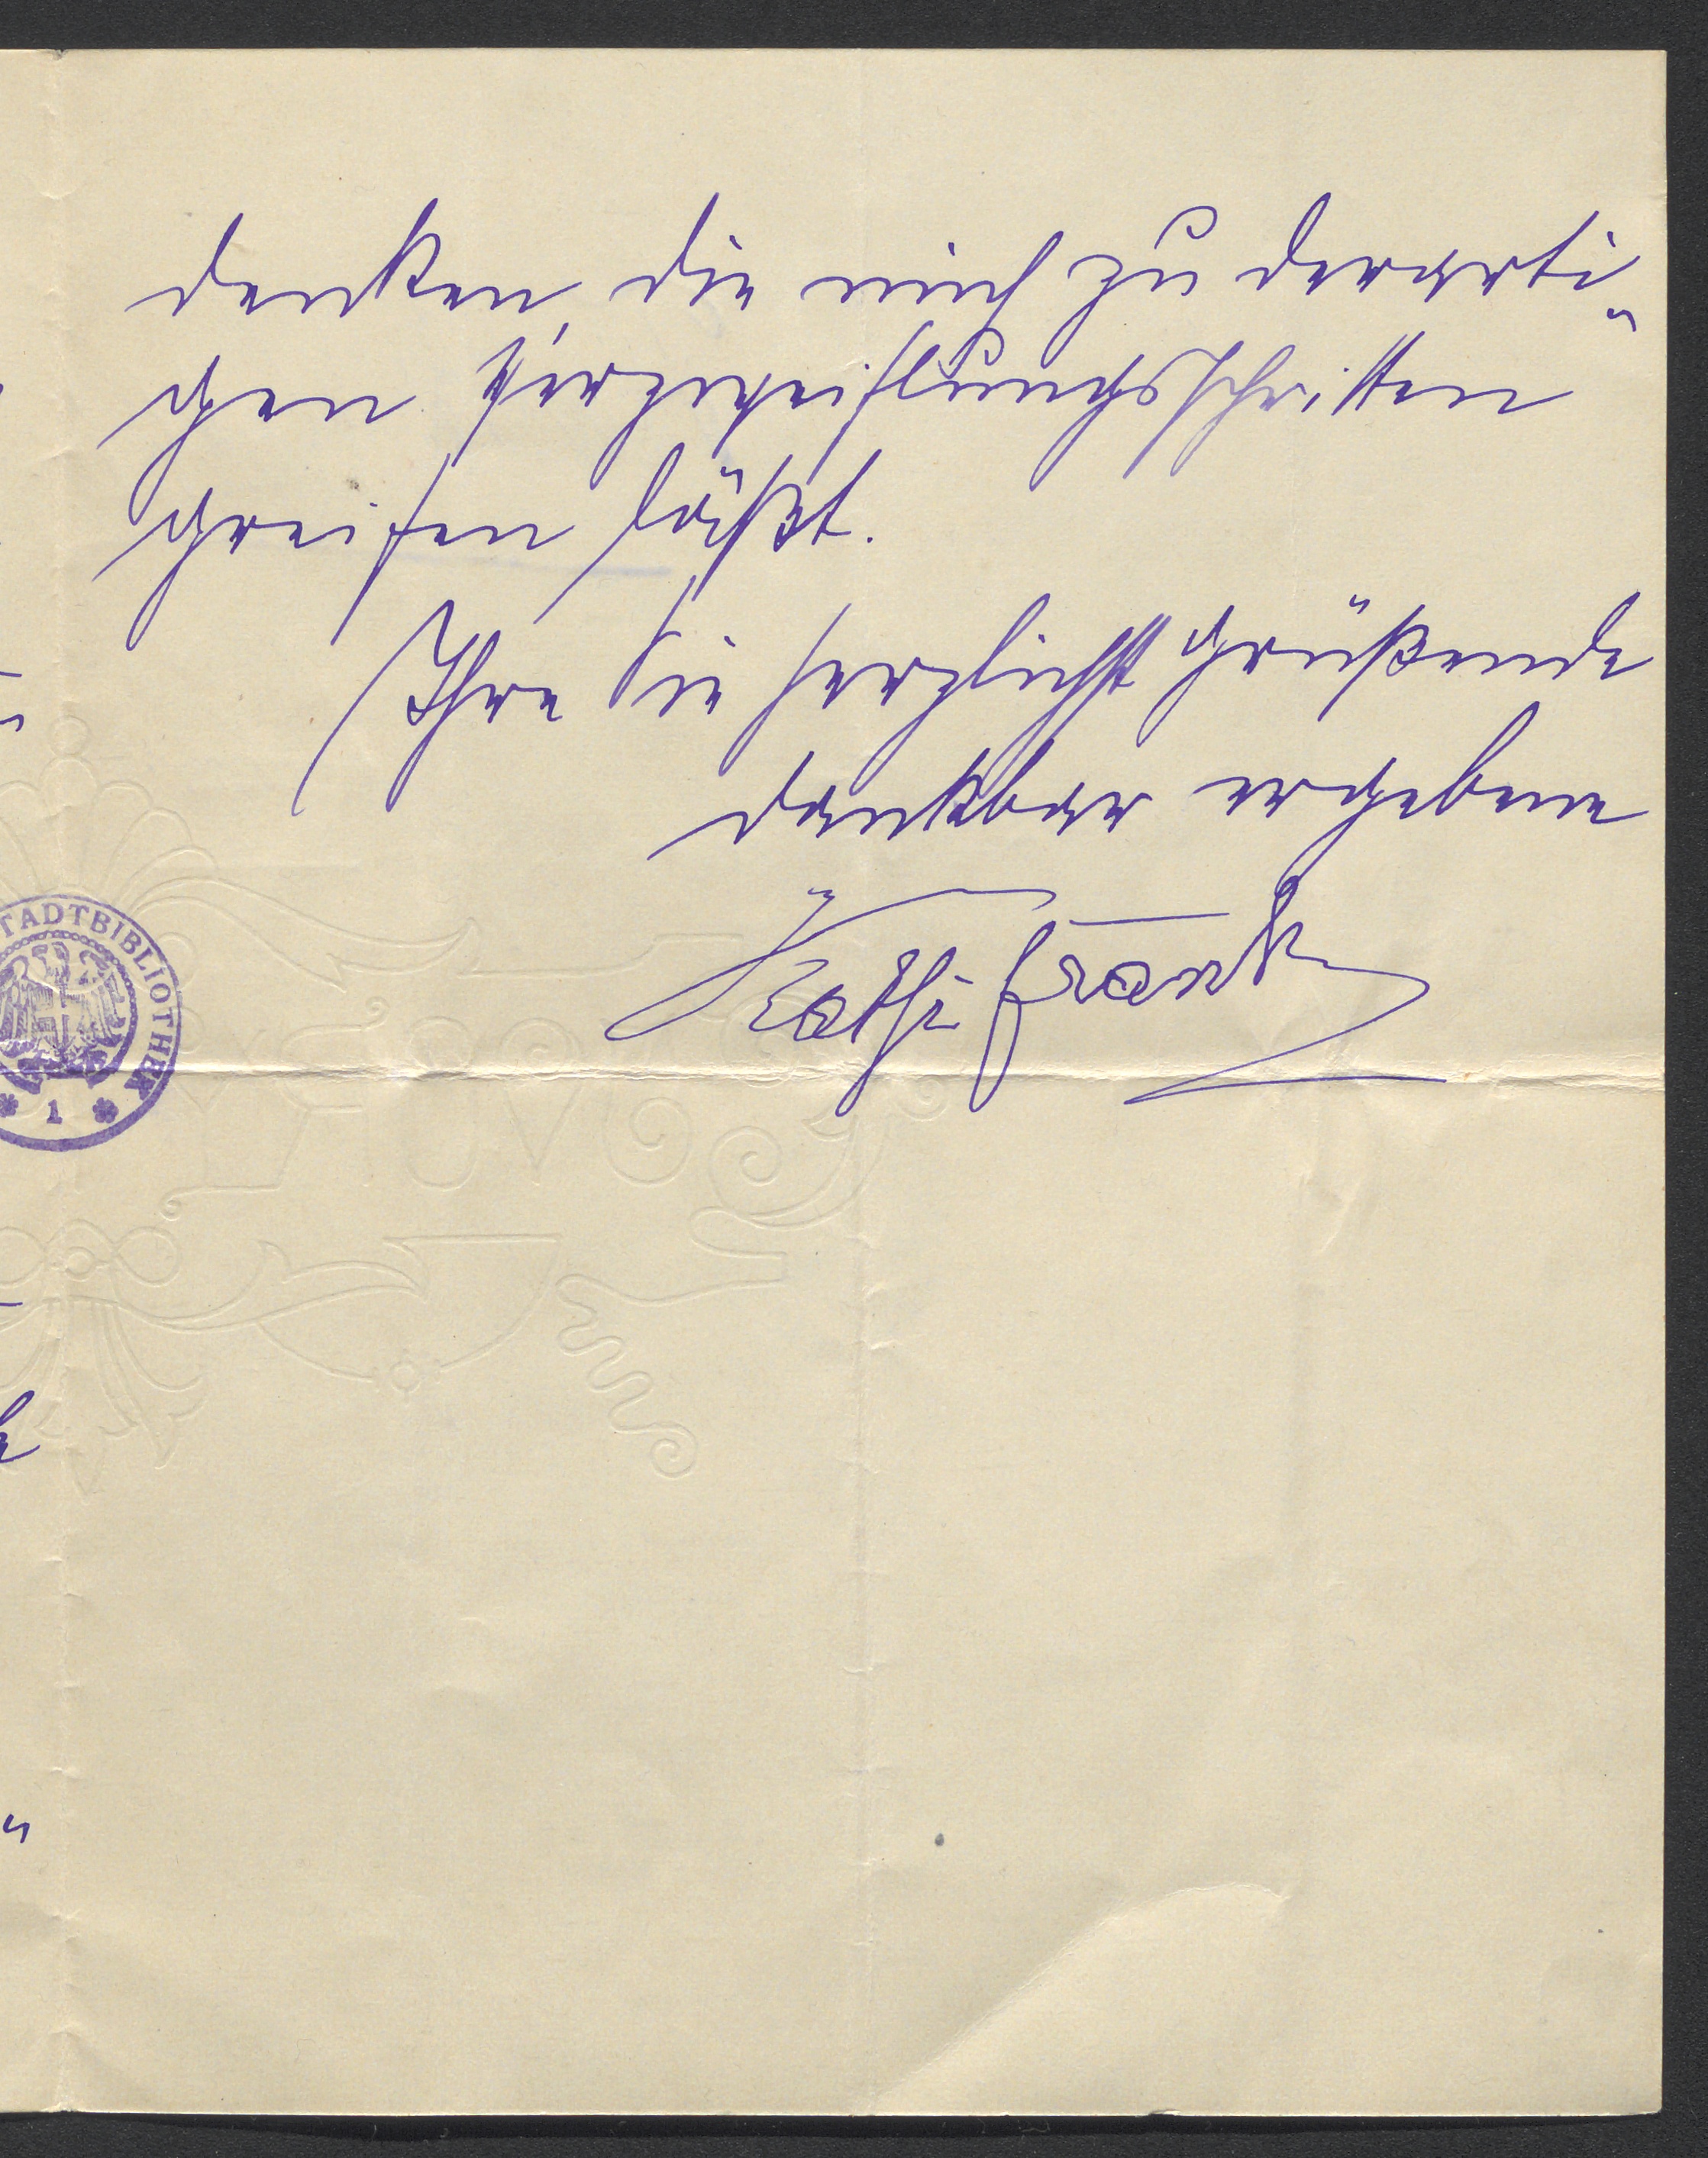 denken, die mich zu derarti-
gen Verzweiflungsschritten
greifen läßt.
Ihre Sie herzlichst grüßende
dankbar ergebene
Kathi Frank
STADTBIBLIOTHEK
1